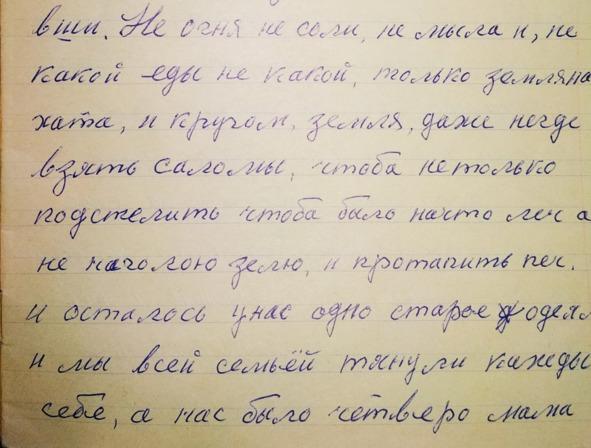 вши. Не огня не соли, не мыла н, не
какой еды не какой, только земляна
хата, и кругом, земля, даже негде
взять саломы, чтоба нетолько
подстелить чтоба было начто леч а
не наголою зелю, и протапить печ.
и осталось унас одно старое одеял
и мы всей семьёй тянули кажды
себе, а нас было четверо мама